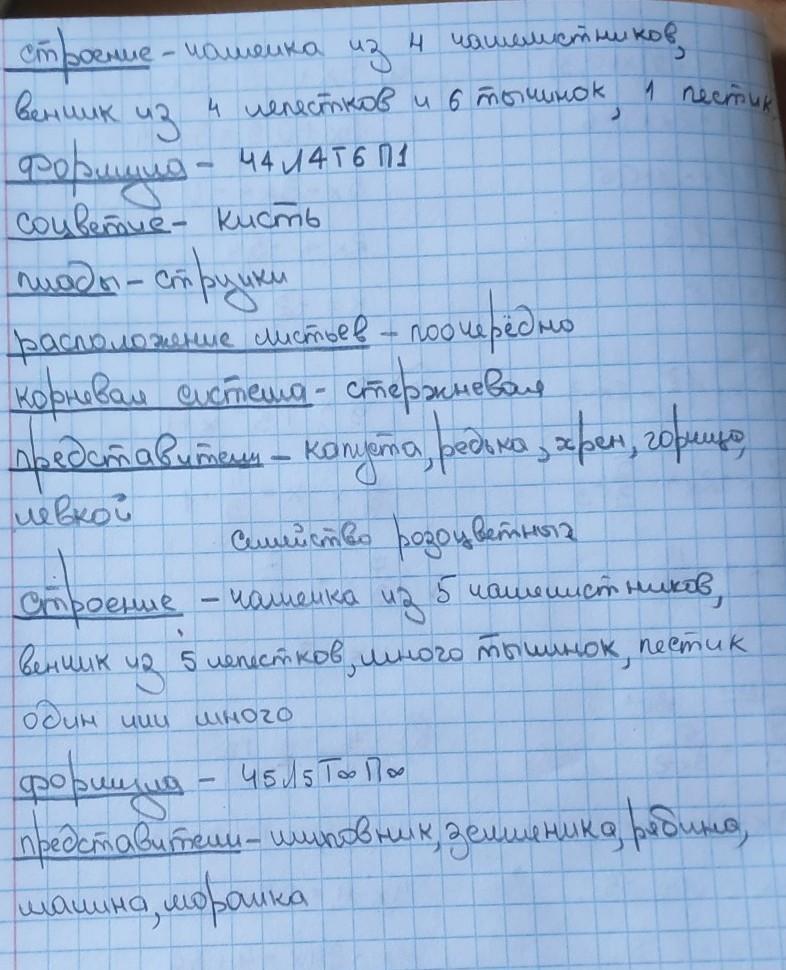 строение - чашечка из 4 чашелистников,
венчик из 4 лепестков и 6 тычинок, 1 пестик
формула - Ч4Л4Т6П1
соцветие - кисть
плоды - стручки
расположение листьев - поочерёдно
корневая система - стержневая
представители - капуста, редька, хрен, горчица,
левкой
семейство розоцветных
строение - чашечка из 5 чашелистников,
венчик из 5 лепестков, много тычинок, пестик
один или много
формула - Ч5Л5Т∞П∞
представители - шиповник, земляника, рябина,
малина, морошка